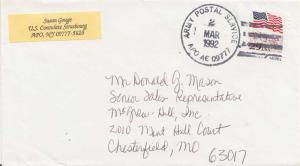 Susan Gouge
U.S. Consulate Strasbourg
APO, NY 09777-5620
ARMY POSTAL SERVICE
2
MAR
1992
APO AE 09777
Mr. Donald G. Mason
Senior Sales Representative
McGraw-Hill, Inc.
2010 Mint Hill Court
Chesterfield, MO
63017